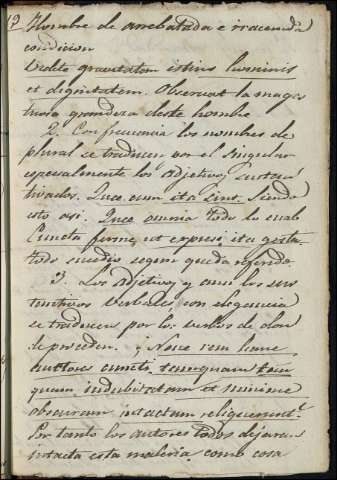 19 Hombre de arrebatada e iracunda
condicion
Vedite gravitatem istius hominis
et dignitatem. Observad la mages
tuosa grandeza deste hombre
2. Con frecuencia los nombres de
plural se traducen por el singular
especialmente los adjetivos sustan
tivados. Quae cum ita sint. Siendo
esto asi. Quae omnia todo lo cual
Cuncta ferme, ut exposui, ita gesta.
todo sucedio segun queda referido
3. Los adjetivos, y aun los sus
tantivos verbales, con elegancia
se traducen por los verbos de don
de proceden. Hanc rem
auctores cuncti, tanquam
quam indubitatam et minime
obscuram intactam reliquerunt.
Por tanto los autores todos dejaron
intacta esta materia, como cosa